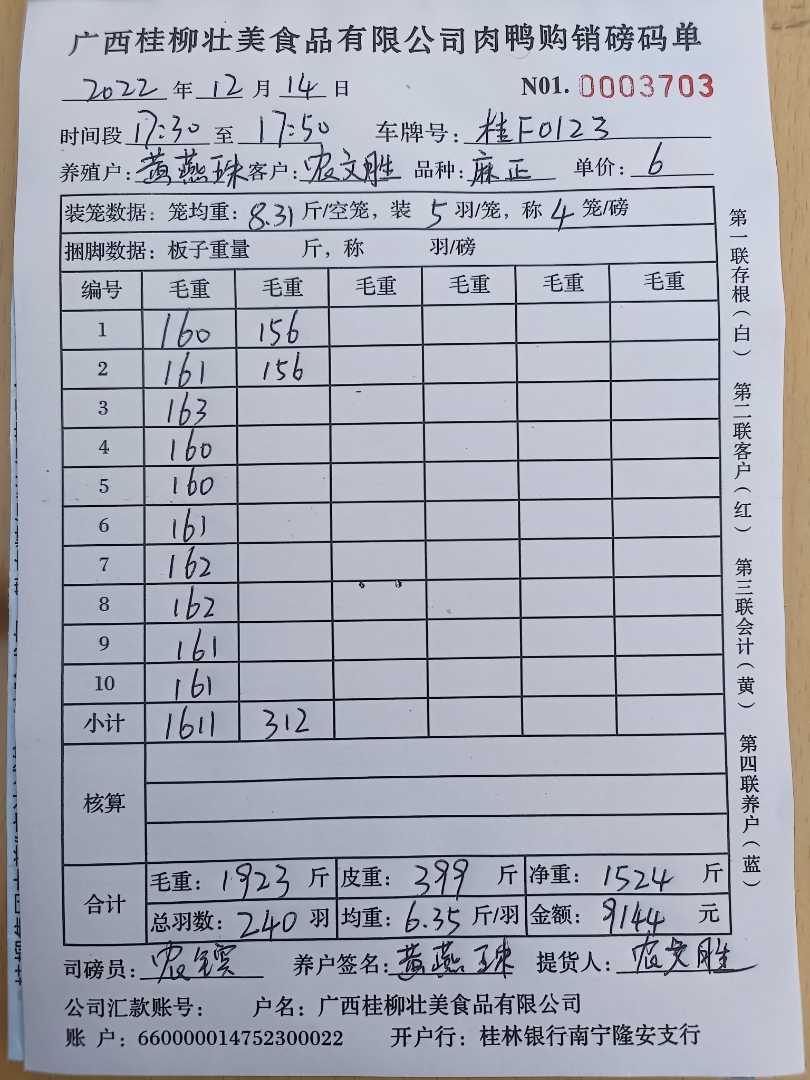 广西桂柳壮美食品有限公司肉鸭购销磅码单
2022 年 12 月 14 日 N01. 0003703
时间段 17:30 至 17:50 车牌号: 桂F0123
养殖户: 黄燕珠 客户: 农文胜 品种: 麻正 单价: 6
装笼数据: 笼均重: 8.31 斤/空笼, 装 5 羽/笼, 称 4 笼/磅
捆脚数据: 板子重量 斤, 称 羽/磅
编号 毛重 毛重 毛重 毛重 毛重 毛重
1 160 156
2 161 156
3 163
4 160
5 160
6 161
7 162
8 162
9 161
10 161
小计 1611 312
核算
合计 毛重: 1923 斤 皮重: 399 斤 净重: 1524 斤
总羽数: 240 羽 均重: 6.35 斤/羽 金额: 9144 元
司磅员: 农 养户签名: 黄燕珠 提货人: 农文胜
公司汇款账号: 户名: 广西桂柳壮美食品有限公司
账 户: 660000014752300022 开户行: 桂林银行南宁隆安支行
第一联存根(白) 第二联客户(红) 第三联会计(黄) 第四联养户(蓝)